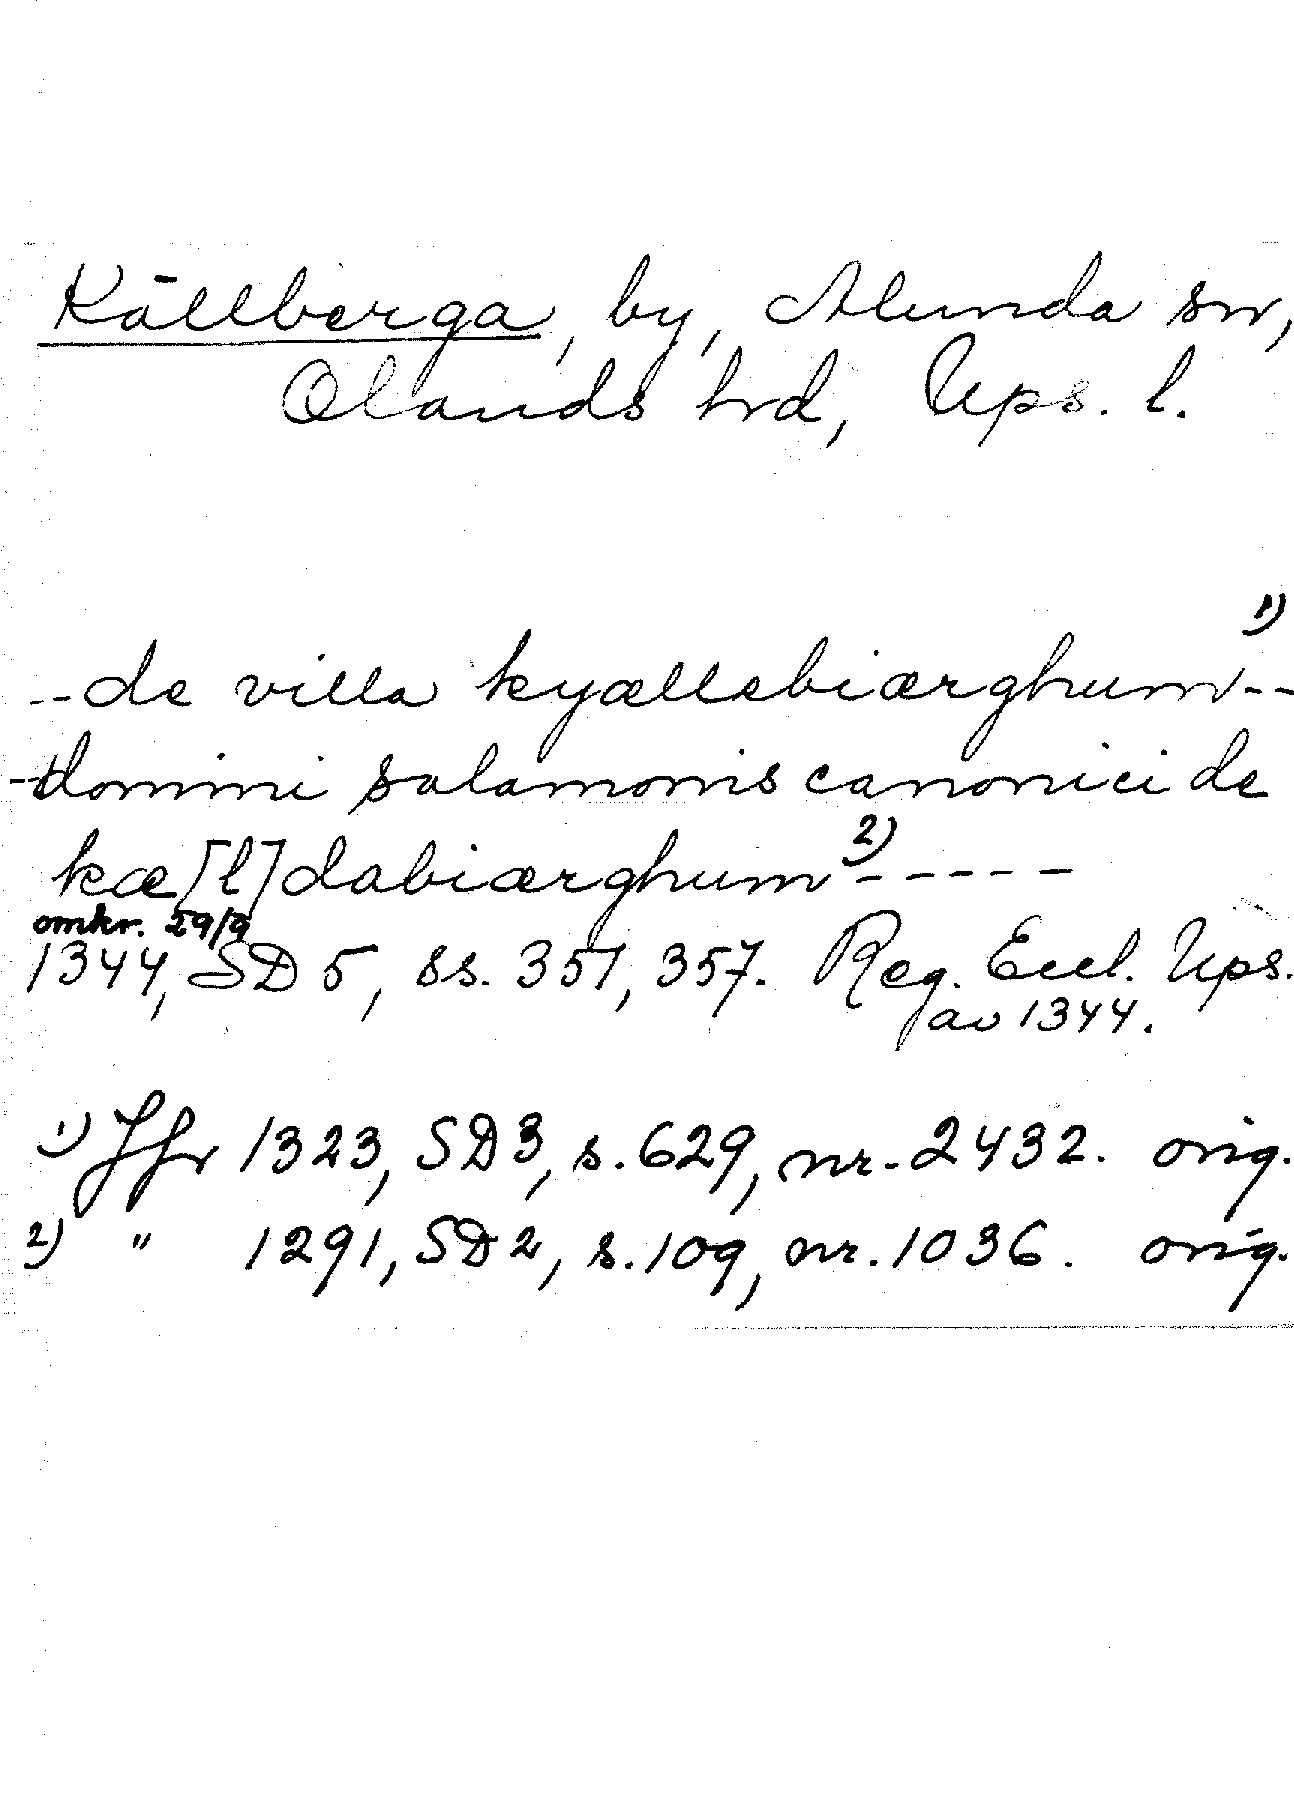 Källberga, by, Alunda sn,
Olands hrd, Ups. l.
--de villa kyællebiærghum 1)--
-domini salamonis canonici de
kæ[l]dabiærghum 2)-----
omkr. 29/9
1344, SD 5, ss. 351, 357. Reg. Eccl. Ups.
av 1344.
1) Jfr 1323, SD3, s. 629, nr. 2432. orig.
2) " 1291, SD2, s. 109, nr. 1036. orig.